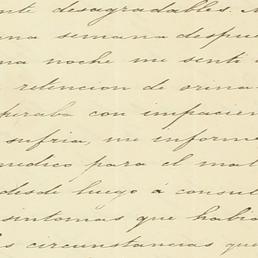 nte desagradables.
una semana despué
na noche me sentí
retencion de orina
peraba con impacien
sufria, me informe
medico para el mal
desde luego á consul
sintomas que habia
las circunstancias que